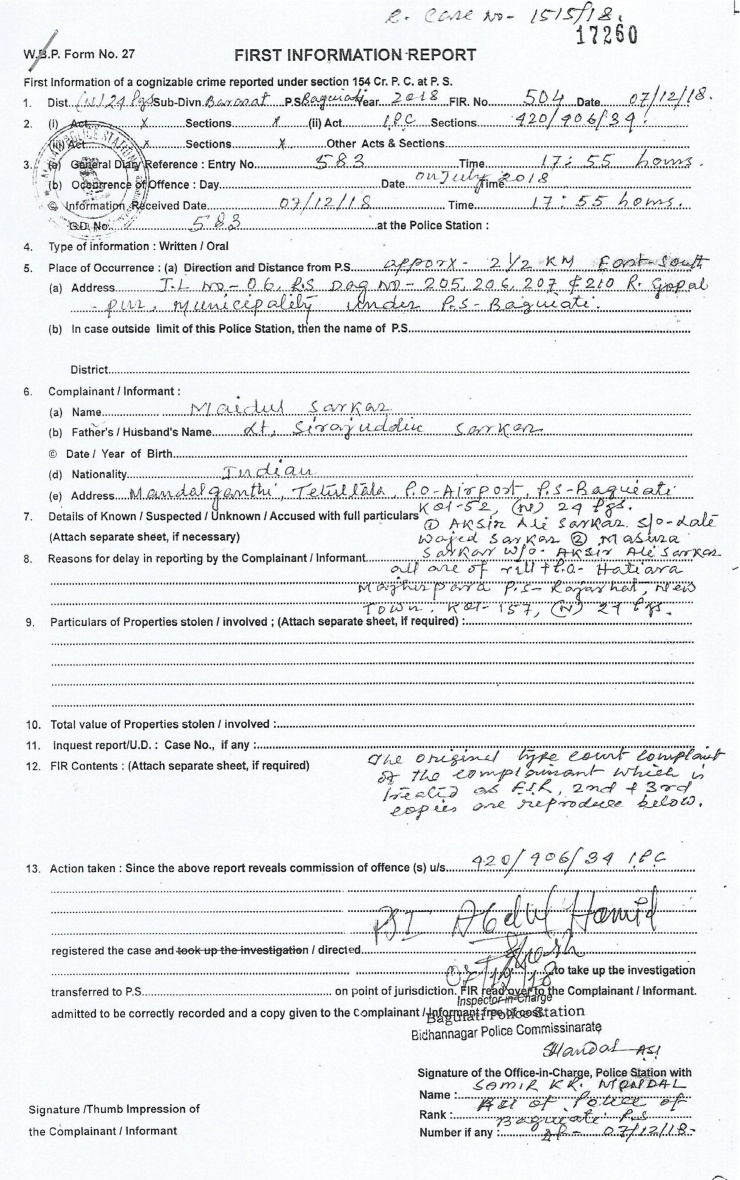 R. Case No- 1515/18.
17260
W.B.P. Form No. 27
FIRST INFORMATION REPORT
First Information of a cognizable crime reported under section 154 Cr. P. C. at P. S.
1. Dist. (N) 24 Pgs Sub-Divn. Barasat P.S. Baguiati Year 2018 FIR. No. 504 Date 07/12/18.
2. (i) Act X Sections X (ii) Act IPC Sections 420/406/34.
(iii) Act X Sections X Other Acts & Sections
3. (a) General Diary Reference : Entry No. 583 Time 17:55 hours.
(b) Occurrence of Offence : Day Date on July 2018 Time
© Information Received Date 07/12/18 Time 17:55 hours.
G.D. No. 583 at the Police Station :
4. Type of information : Written / Oral
5. Place of Occurrence : (a) Direction and Distance from P.S. apporx- 2 1/2 KM East-South
(a) Address J.L No-06, R.S Dag No-205, 206, 207 & 210 R. Gopal
-pur, Municipality under P.S- Baguiati.
(b) In case outside limit of this Police Station, then the name of P.S.
District
6. Complainant / Informant :
(a) Name Maidul Sarkar
(b) Father's / Husband's Name Lt. Sirajuddin Sarkar
© Date / Year of Birth
(d) Nationality Indian
(e) Address Mandalganthi, Tetultala, P.O-Airport, P.S-Baguiati
Kol-52, (N) 24 Pgs.
7. Details of Known / Suspected / Unknown / Accused with full particulars
① Aksir Ali Sarkar s/o- Late
(Attach separate sheet, if necessary) Wajed Sarkar ② Masura
Sarkar W/o- Aksir Ali Sarkar
8. Reasons for delay in reporting by the Complainant / Informant
all are of vill + P.O- Hatiara
Majherpara P.S- Rajarhat, New
Town. Kol-157, (N) 24 Pgs.
9. Particulars of Properties stolen / involved ; (Attach separate sheet, if required) :
10. Total value of Properties stolen / involved :
11. Inquest report/U.D. : Case No., if any :
12. FIR Contents : (Attach separate sheet, if required) The original type court complaint
of the complainant which is
treated as F.I.R, 2nd + 3rd
copies are reproduce below.
13. Action taken : Since the above report reveals commission of offence (s) u/s. 420/406/34 IPC
PSI Abdul Hamid
registered the case and took up the investigation / directed
07/12/18 to take up the investigation
transferred to P.S. on point of jurisdiction. FIR read over to the Complainant / Informant.
Inspector-in-Charge
admitted to be correctly recorded and a copy given to the Complainant / Informant free of cost.
Baguiati Police Station
Bidhannagar Police Commissinarate
SMandal ASI
Signature of the Office-in-Charge, Police Station with
Name : SAMIR KR. MONDAL
Signature /Thumb Impression of
Rank : ASI of Police of
Baguiati P.S
the Complainant / Informant
Number if any : 07/12/18